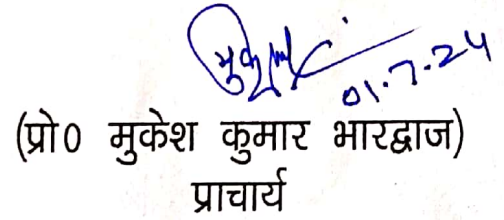 मुकेश
01.7.24
(प्रो0 मुकेश कुमार भारद्वाज)
प्राचार्य